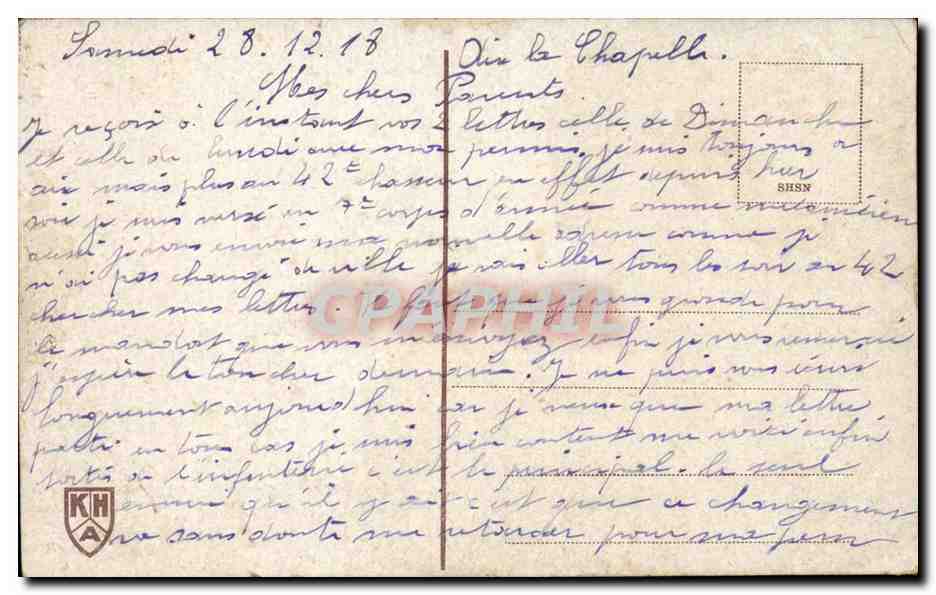 Samedi 28.12.18 Aix la Chapelle.
Mes chers Parents
Je reçois à l'instant vos 2 lettres celle de Dimanche
et celle de lundi avec ma permis, je suis toujours a
aix mais plus au 42e chasseur en effet depuis hier
soir je suis versé en 7e corps d'armée comme mécanicien
aussi je vous envoie ma nouvelle adresse comme je
n'ai pas changé de ville je vais aller tous les soir au 42
chercher mes lettres. Je que je vous gronde pour
ce mandat que vous m'envoyez, enfin je vous remercie
j'espère le toucher demain. Je ne puis vous écrire
longuement aujourd'hui car je veux que ma lettre
parte en tous cas je suis bien content me voici enfin
sortis de l'infanterie c'est le principal. le seul
qu'il y ait c'est que ce changement
va sans doute me retarder pour ma perm
SHSN
KHA
CPAPHIL